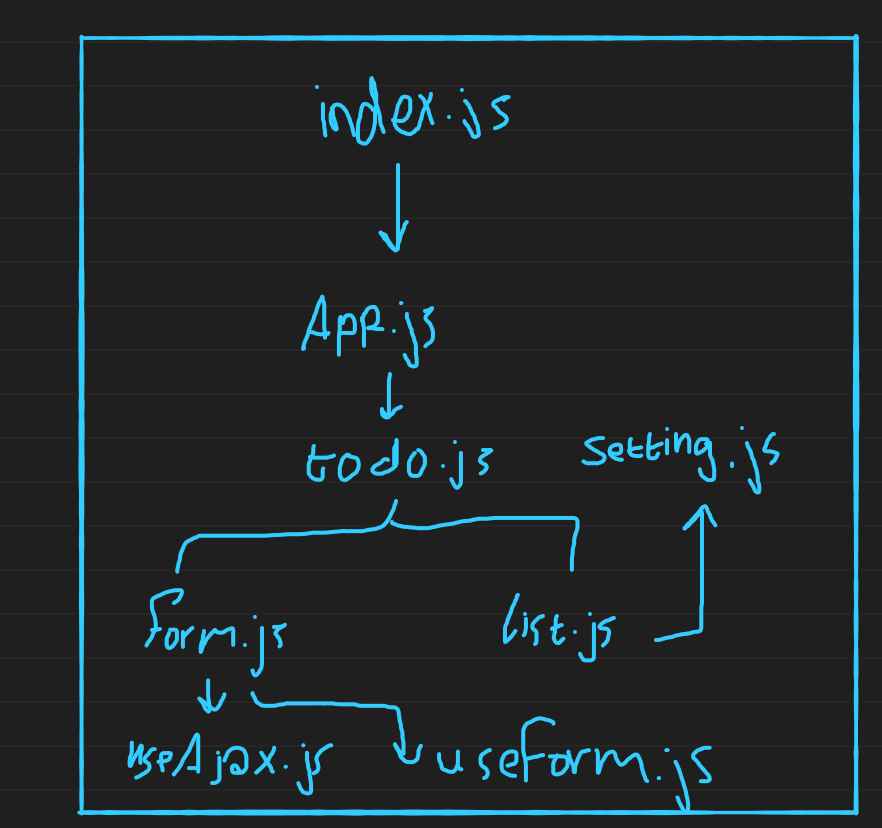 index.js
App.js
todo.js
setting.js
form.js
list.js
useAjax.js
useform.js